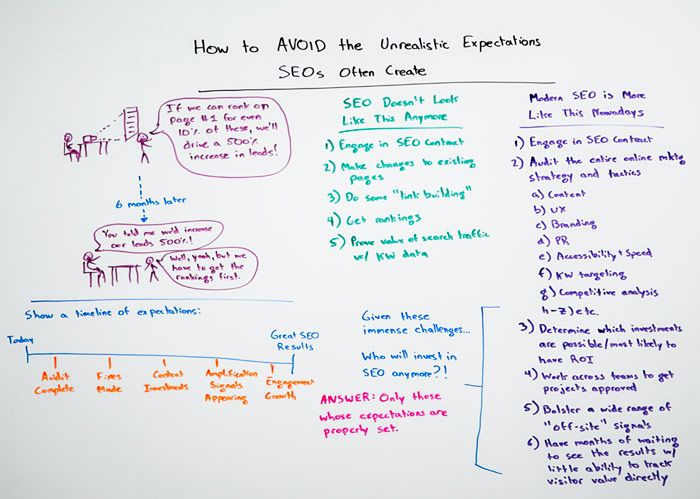 How to AVOID the Unrealistic Expectations
SEOs Often Create
If we can rank on
Page #1 for even
10% of these, we'll
drive a 500%
increase in leads!
6 months later
You told me we'd increase
our leads 500%!
Well, yeah, but we
have to get the
rankings first.
SEO Doesn't Look
Like This Anymore
1) Engage in SEO Contract
2) Make changes to existing
pages
3) Do some "link building"
4) Get rankings
5) Prove value of search traffic
w/ KW data
Modern SEO is More
Like This Nowadays
1) Engage in SEO Contract
2) Audit the entire online mktg
strategy and tactics
a) Content
b) UX
c) Branding
d) PR
e) Accessibility + Speed
f) KW targeting
g) Competitive analysis
h-z) etc.
3) Determine which investments
are possible/most likely to
have ROI
4) Work across teams to get
projects approved
5) Bolster a wide range of
"off-site" signals
6) Have months of waiting
to see the results w/
little ability to track
visitor value directly
Show a timeline of expectations:
Today
Great SEO
Results
Audit
Complete
Fixes
Made
Content
Investments
Amplification
Signals
Appearing
Engagement
Growth
Given these
immense challenges...
Who will invest in
SEO anymore?!
ANSWER: Only those
whose expectations are
properly set.